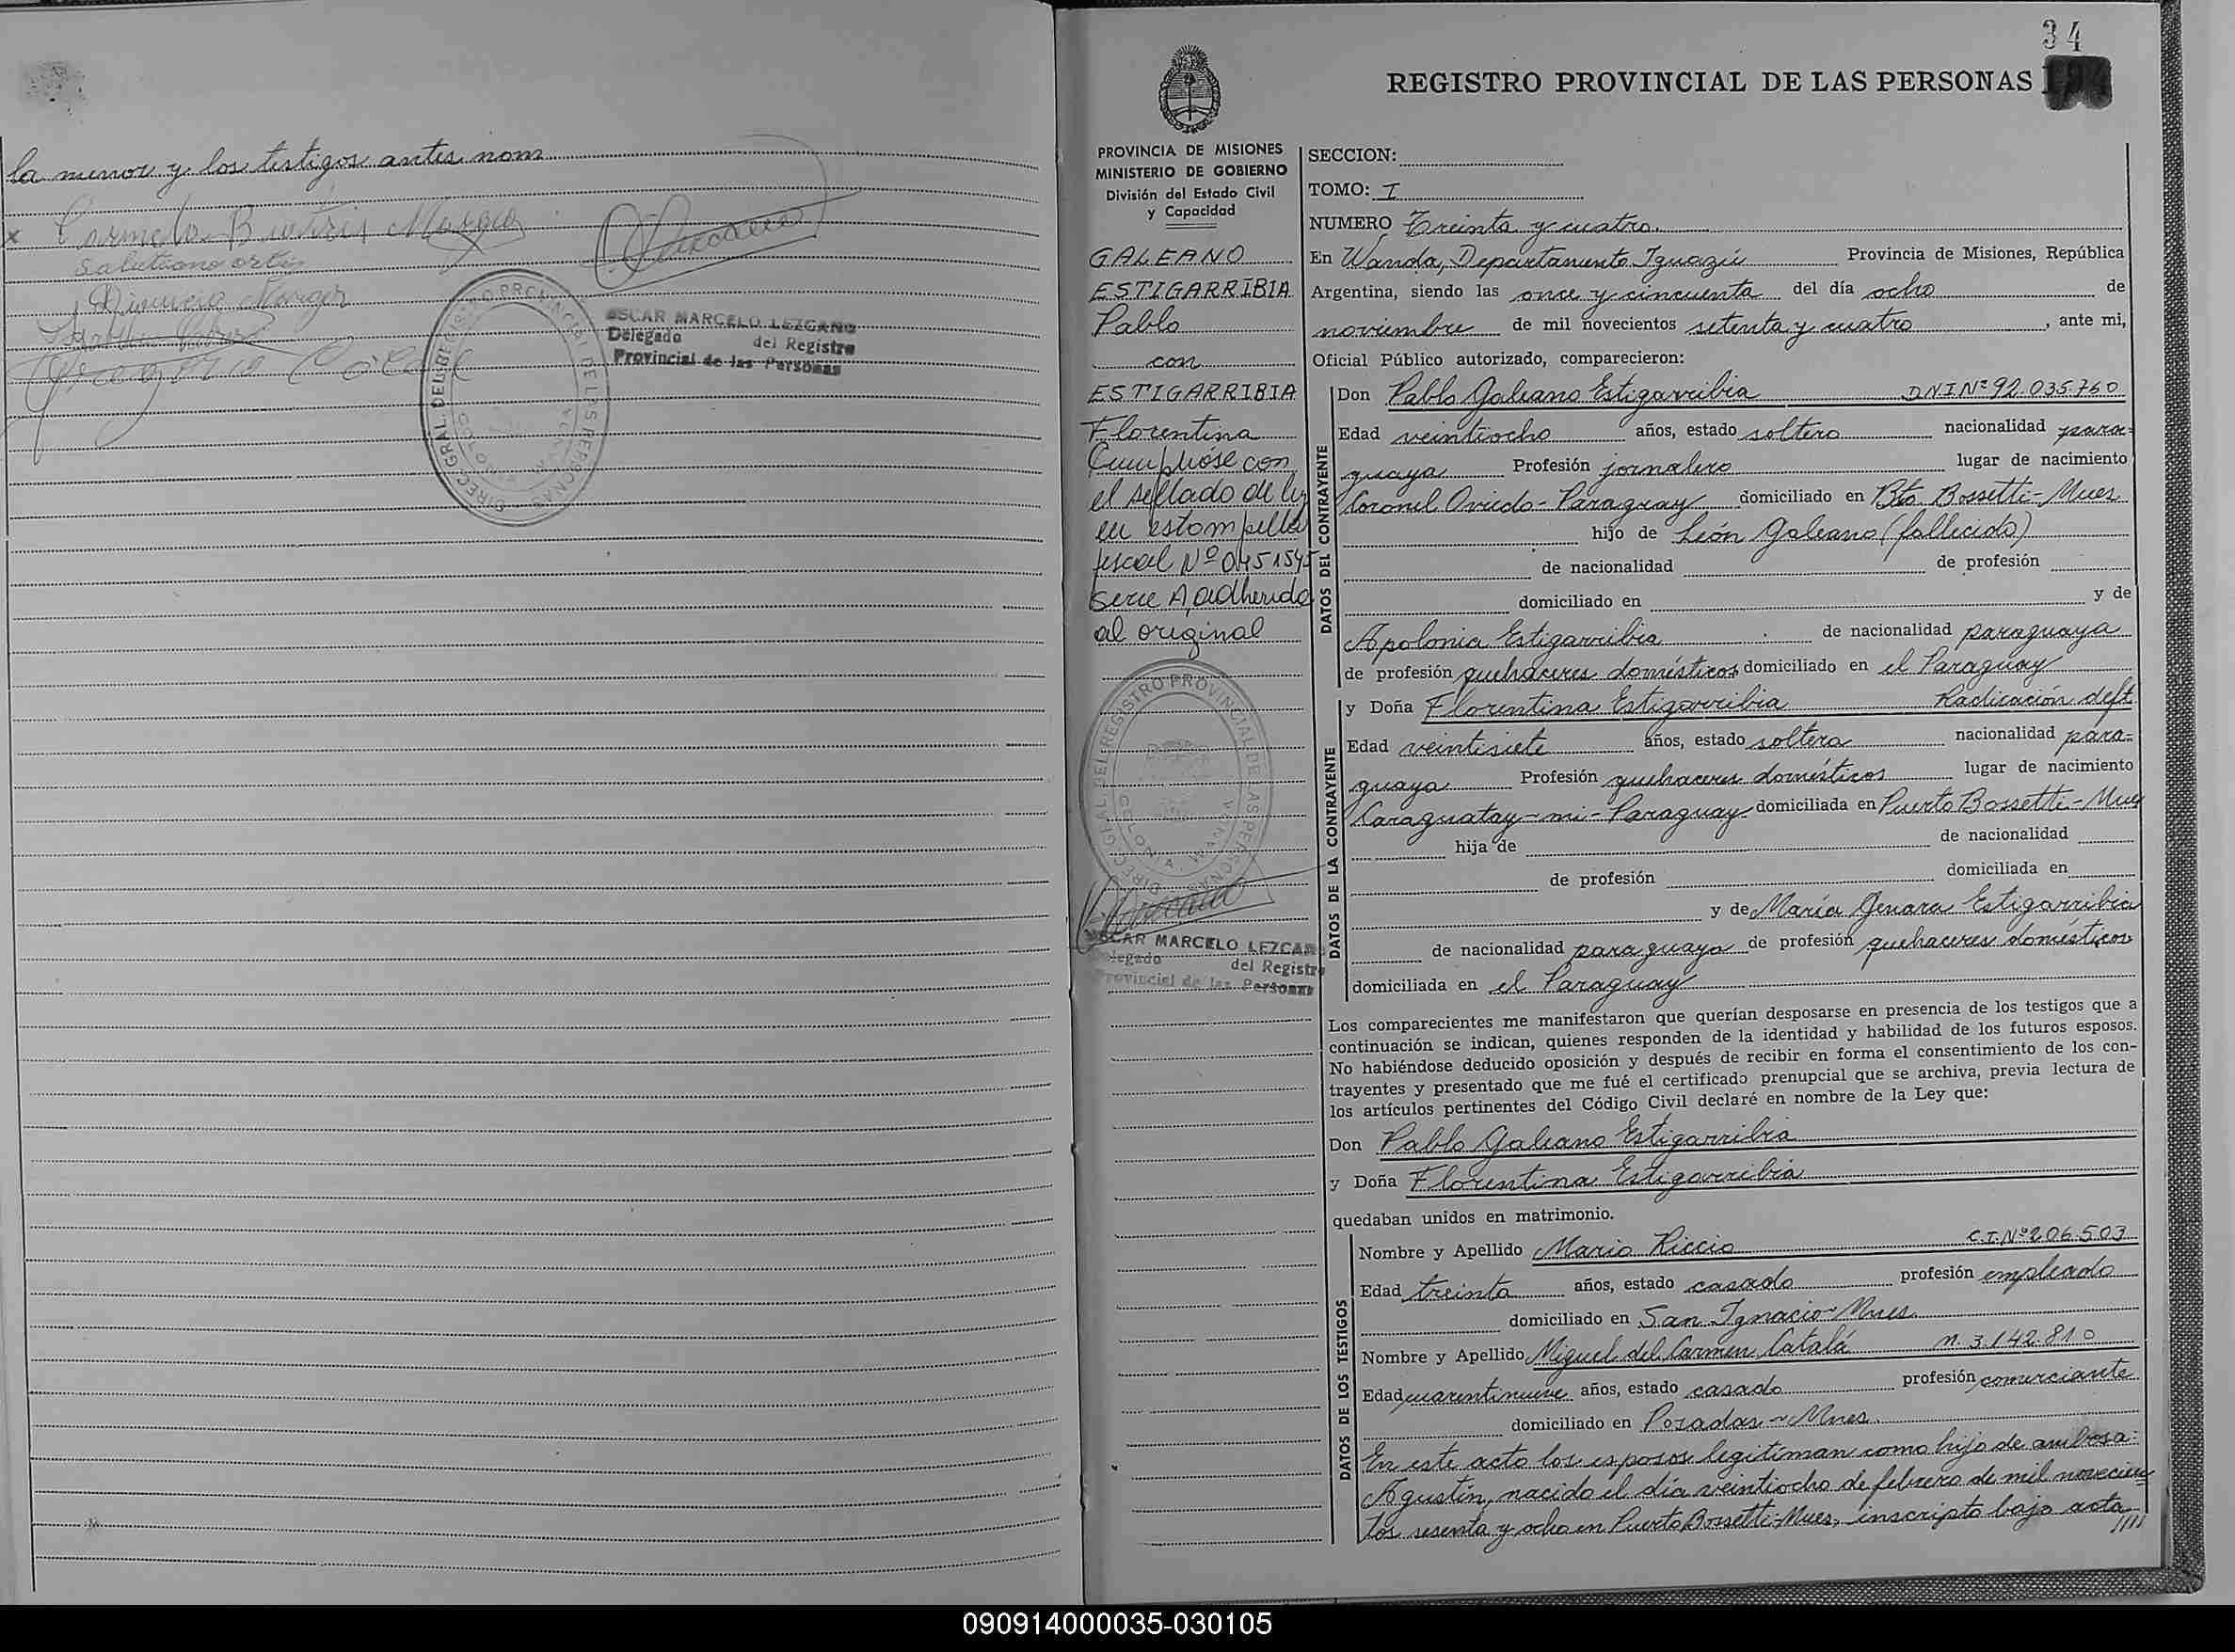 la menor y los testigos antes nom
x Carmelo Beatris
OSCAR MARCELO LEZCANO
Delegado del Registro
Provincial de las Personas
34
REGISTRO PROVINCIAL DE LAS PERSONAS
PROVINCIA DE MISIONES
MINISTERIO DE GOBIERNO
División del Estado Civil
y Capacidad
GALEANO
ESTIGARRIBIA
Pablo
con
ESTIGARRIBIA
Florentina
Cumplióse con
el sellado de ley
en estampilla
fiscal Nº 0451545
serie A, adherida
al original
DIREC. GRAL. DEL REGISTRO PROVINCIAL DE LAS PERSONAS
COLONIA WANDA
OSCAR MARCELO LEZCANO
Delegado del Registro
Provincial de las Personas
SECCION:
TOMO: I
NUMERO Treinta y cuatro.
En Wanda, Departamento Iguazú Provincia de Misiones, República
Argentina, siendo las once y cincuenta del día ocho de
noviembre de mil novecientos setenta y cuatro, ante mi,
Oficial Público autorizado, comparecieron:
DATOS DEL CONTRAYENTE
Don Pablo Galeano Estigarribia DNI Nº 92.035.760
Edad veintiocho años, estado soltero nacionalidad para-
guaya Profesión jornalero lugar de nacimiento
Coronel Oviedo - Paraguay domiciliado en Pto Bossetti - Mnes
hijo de León Galeano (fallecido)
de nacionalidad de profesión
domiciliado en y de
Apolonia Estigarribia de nacionalidad paraguaya
de profesión quehaceres domésticos domiciliado en el Paraguay
DATOS DE LA CONTRAYENTE
y Doña Florentina Estigarribia Radicación deft
Edad veintisiete años, estado soltera nacionalidad para-
guaya Profesión quehaceres domésticos lugar de nacimiento
Caraguatay-mi - Paraguay domiciliada en Puerto Bossetti - Mnes
hija de de nacionalidad
de profesión domiciliada en
y de María Genara Estigarribia
de nacionalidad paraguaya de profesión quehaceres domésticos
domiciliada en el Paraguay
Los comparecientes me manifestaron que querían desposarse en presencia de los testigos que a
continuación se indican, quienes responden de la identidad y habilidad de los futuros esposos.
No habiéndose deducido oposición y después de recibir en forma el consentimiento de los con-
trayentes y presentado que me fué el certificado prenupcial que se archiva, previa lectura de
los artículos pertinentes del Código Civil declaré en nombre de la Ley que:
Don Pablo Galeano Estigarribia
y Doña Florentina Estigarribia
quedaban unidos en matrimonio.
DATOS DE LOS TESTIGOS
Nombre y Apellido Mario Riccio C.I.Nº 206.503
Edad treinta años, estado casado profesión empleado
domiciliado en San Ignacio - Mnes.
Nombre y Apellido Miguel del Carmen Catalá M. 3.142.810
Edad cuarentinueve años, estado casado profesión comerciante
domiciliado en Posadas - Mnes.
En este acto los esposos legitiman como hijo de ambos a:
Agustín, nacido el día veintiocho de febrero de mil novecien-
tos sesenta y ocho en Puerto Bossetti - Mnes, inscripto bajo acta ////
090914000035-030105